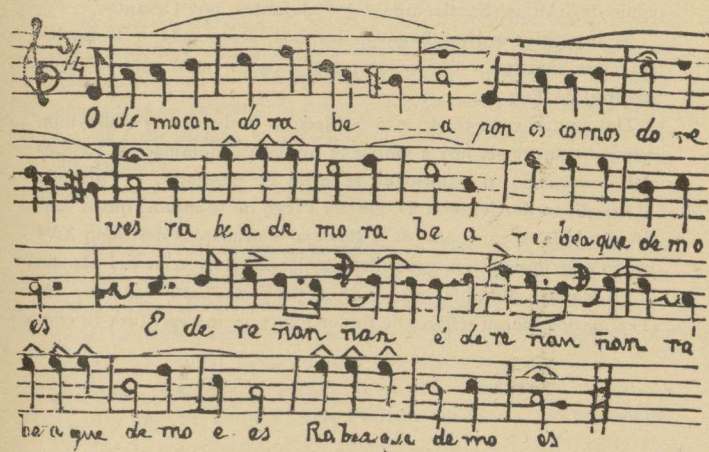 O de mocan do ra be ----- a pon os cornos do re
ves ra be a de mo ra be a re beaque de mo
és E de re ñan ñan é de re ñan ñan rá
be a que de mo e es Ra bea que de mo es